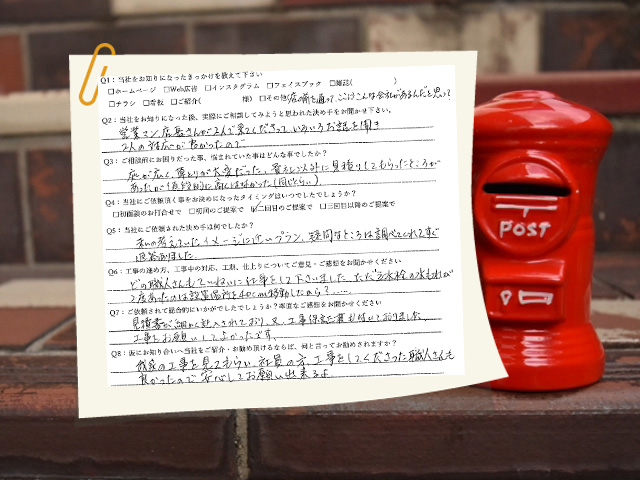 Q1：当社をお知りになったきっかけを教えて下さい
□ホームページ □Web広告 □インスタグラム □フェイスブック □雑誌( )
□チラシ □看板 □ご紹介( 様) □その他 店の前を通って、ここにこんな会社があるんだと思って
Q2：当社をお知りになった後、実際にご相談してみようと思われた決め手をお聞かせ下さい。
営業マン、店長さんが2人で来て下さって、いろいろお話を聞き
2人の対応が良かったので
Q3：ご相談前にお困りだった事、悩まれていた事はどんな事でしたか？
庭が広く、草とりが大変だった、貴社以外に見積りしてもらったところが
あったが値段的に高くはなかった(同じくらい)
Q4：当社にご依頼頂く事をお決めになったタイミングはいつでしたでしょうか？
□初面談のお打合せで □初回のご提案で ☑二回目のご提案で □三回目以降のご提案で
Q5：当社にご依頼された決め手は何でしたか？
私の考えていたイメージに近いプラン、疑問なところは調べてくれてすぐ
返答がきました
Q6：工事の進め方、工事中の対応、工期、仕上りについてご意見・ご感想をお聞かせください
どの職人さんもていねいに仕事をして下さいました、ただ立水栓の水もれが
2度あったのは設置場所を40cm移動したから？……
Q7：ご依頼されて総合的にいかがでしたでしょうか？率直なご感想をお聞かせください
見積書が細かく記入されており、又、工事保証書も付いておりました、
工事をお願いしてよかったです、
Q8：仮にお知り合いへ当社をご紹介・お勧め頂けるならば、何と言ってお勧めされますか？
我家の工事を見てもらい、社員の方、工事をしてくださった職人さんも
良かったので安心してお願い出来るよ
POST